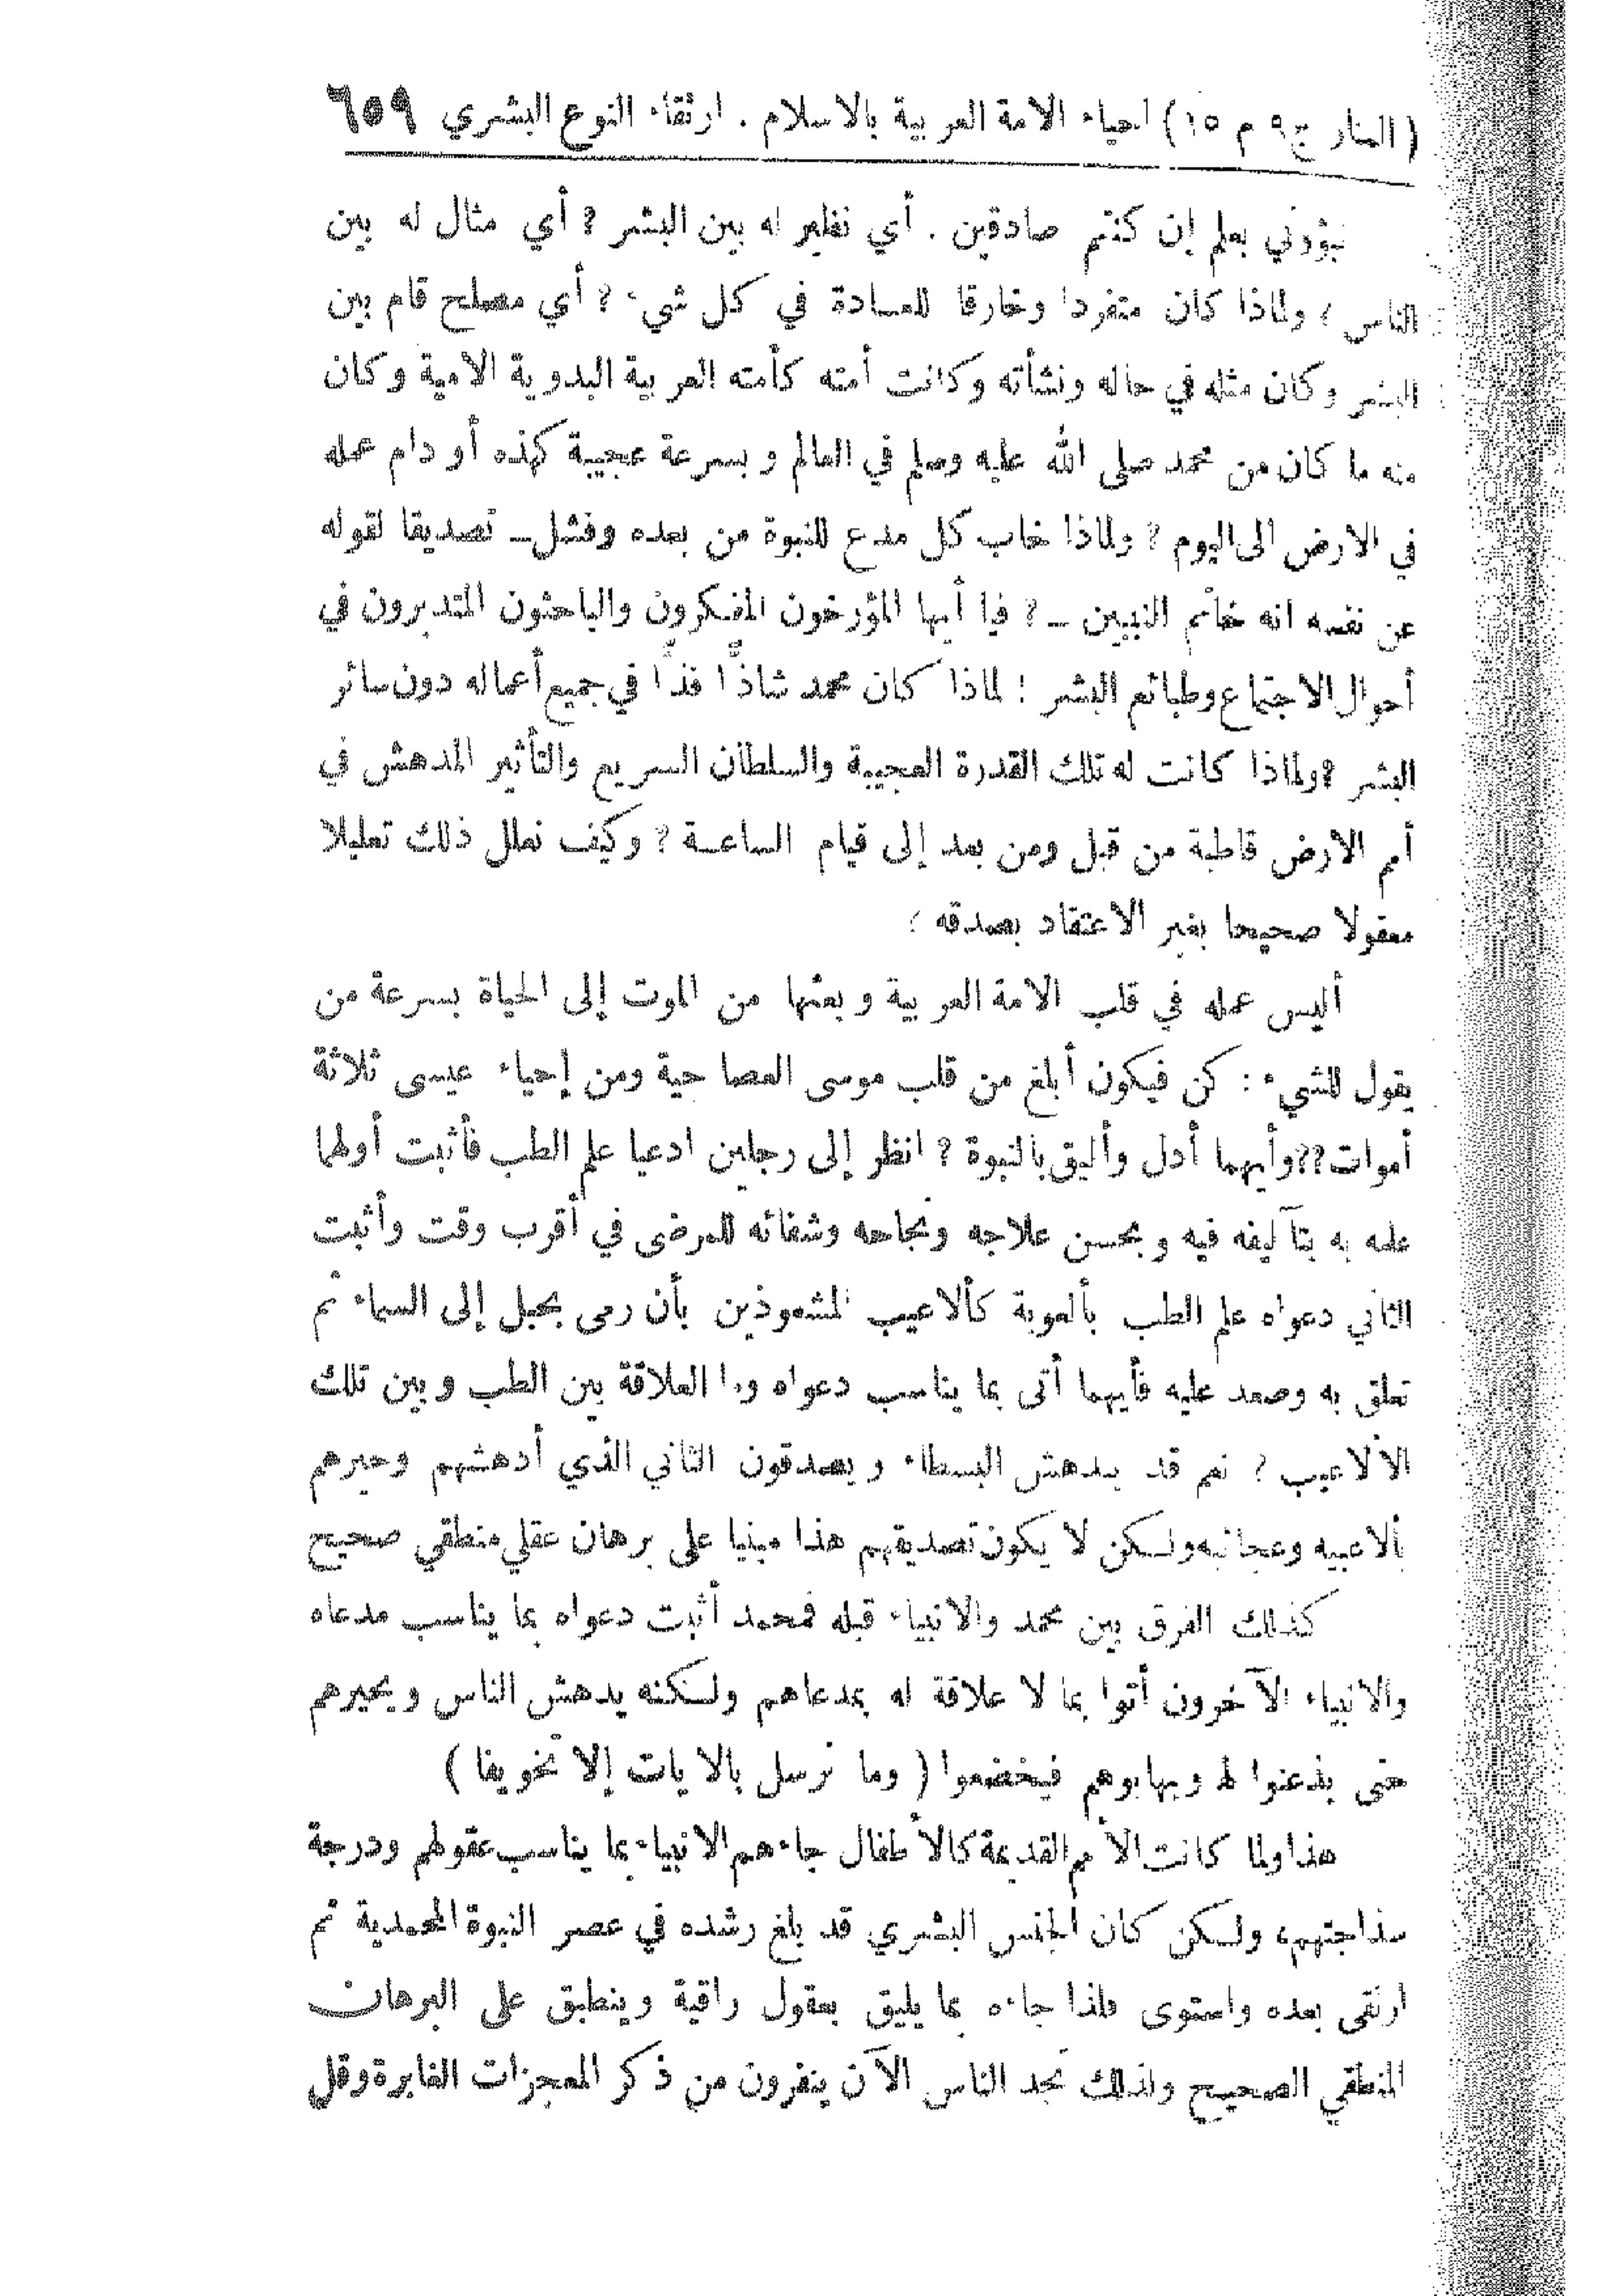 (المنار ج ٩ م ١٥) احياء الامة العربية بالاسلام . ارتقاء النوع البشري ٦٥٩
نبؤني بعلم إن كنتم صادقين . أي نظير له بين البشر ؟ أي مثال له بين
الناس ؟ ولماذا كان متفردا وخارقا للعادة في كل شيء ؟ أي مصلح قام بين
البشر وكان مثله في حاله ونشأته وكانت أمته كأمته العربية البدوية الامية وكان
منه ما كان من محمد صلى الله عليه وسلم في العالم وبسرعة عجيبة كهذه أو دام عمله
في الارض الى اليوم ؟ ولماذا خاب كل مدع للنبوة من بعده وفشل ــ تصديقا لقوله
عن نفسه انه خاتم النبيين ــ ؟ فيا أيها المؤرخون المفكرون والباحثون المتدبرون في
أحوال الاجتماع وطبائع البشر ! لماذا كان محمد شاذًّا فذًّا في جميع أعماله دون سائر
البشر ؟ ولماذا كانت له تلك القدرة العجيبة والسلطان السريع والتأثير المدهش في
أمم الارض قاطبة من قبل ومن بعد إلى قيام الساعة ؟ وكيف نعلل ذلك تعليلا
معقولا صحيحا بغير الاعتقاد بصدقه ؟
أليس عمله في قلب الامة العربية وبعثها من الموت إلى الحياة بسرعة من
يقول للشيء : كن فيكون أبلغ من قلب موسى العصا حية ومن إحياء عيسى ثلاثة
أموات؟؟ وأيهما أدل وأليق بالنبوة ؟ انظر إلى رجلين ادعيا علم الطب فأثبت أولهما
علمه به بتآليفه فيه وبحسن علاجه ونجاحه وشفائه للمرضى في أقرب وقت وأثبت
الثاني دعواه علم الطب بألعوبة كألاعيب المشعوذين بأن رمى بحبل إلى السماء ثم
تعلق به وصعد عليه فأيهما أتى بما يناسب دعواه وما العلاقة بين الطب وبين تلك
الألاعيب ؟ نعم قد يدهش البسطاء ويصدقون الثاني الذي أدهشهم وحيرهم
بألاعيبه وعجائبه ولكن لا يكون تصديقهم هذا مبنيا على برهان عقلي منطقي صحيح
كذلك الفرق بين محمد والانبياء قبله فمحمد أثبت دعواه بما يناسب مدعاه
والانبياء الآخرون أتوا بما لا علاقة له بمدعاهم ولكنه يدهش الناس ويحيرهم
حتى يذعنوا لهم ويهابوهم فيخضعوا ( وما نرسل بالآيات إلا تخويفا )
هذا ولما كانت الأمم القديمة كالأطفال جاءهم الانبياء بما يناسب عقولهم ودرجة
سذاجتهم، ولكن كان الجنس البشري قد بلغ رشده في عصر النبوة المحمدية ثم
ارتقى بعده واستوى فلذا جاءه بما يليق بعقول راقية وينطبق على البرهان
المنطقي الصحيح ولذلك نجد الناس الآن ينفرون من ذكر المعجزات الغابرة وقل